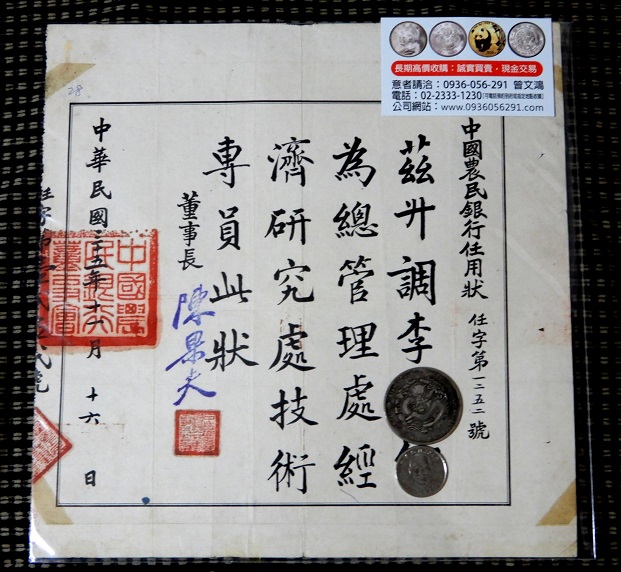 長期高價收購：誠實買賣・現金交易
意者請洽：0936-056-291 曾文鴻
電話：02-2333-1230
公司網站：www.0936056291.com
28
中國農民銀行任用狀
任字第一二五二號
茲升調李
為總管理處經
濟研究處技術
專員此狀
董事長
陳果夫
中華民國三十五年十一月十六日
中國農民銀行董事會
任字第
號